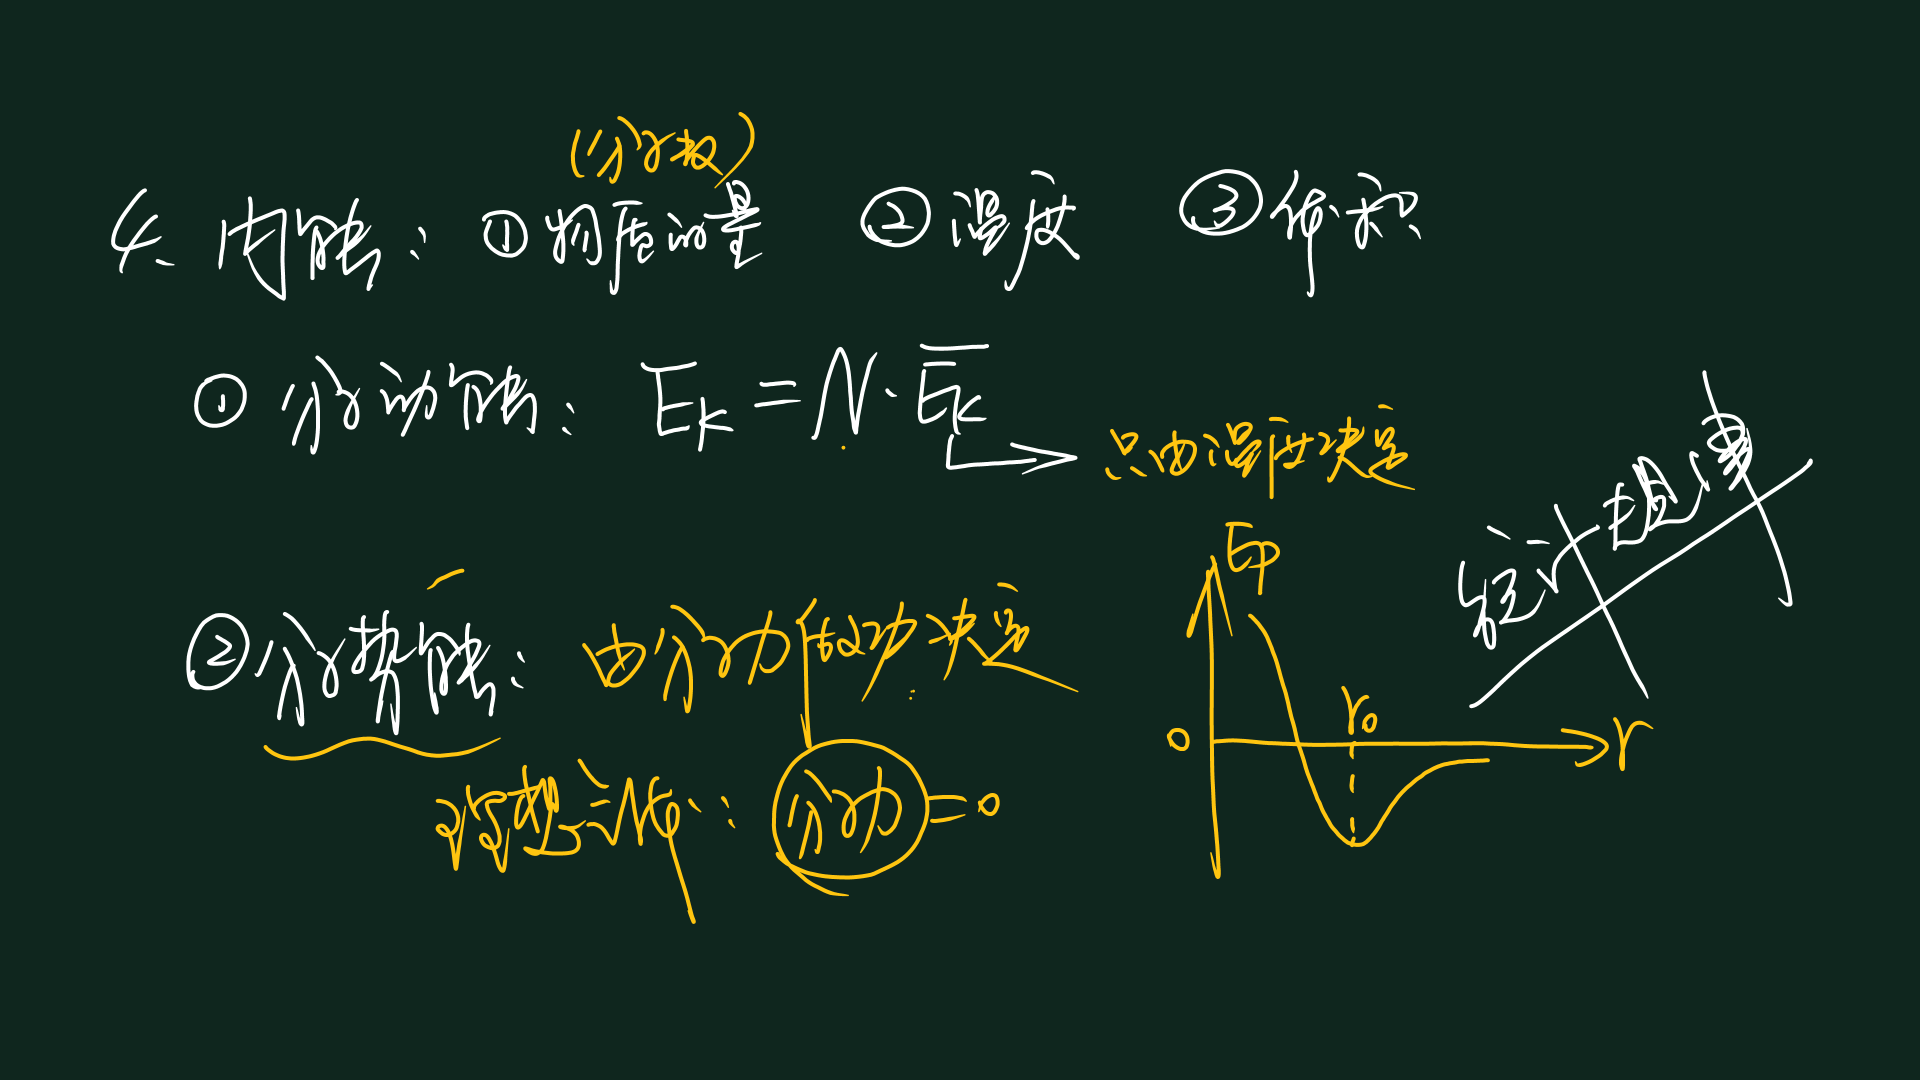 (分子数)
4、内能：①物质的量 ②温度 ③体积
①分子动能：Eₖ = N·E̅ₖ
只由温度决定
统计规律
②分子势能：由分子力做功决定
理想气体：分子力=0
Eₚ
r₀
0
r